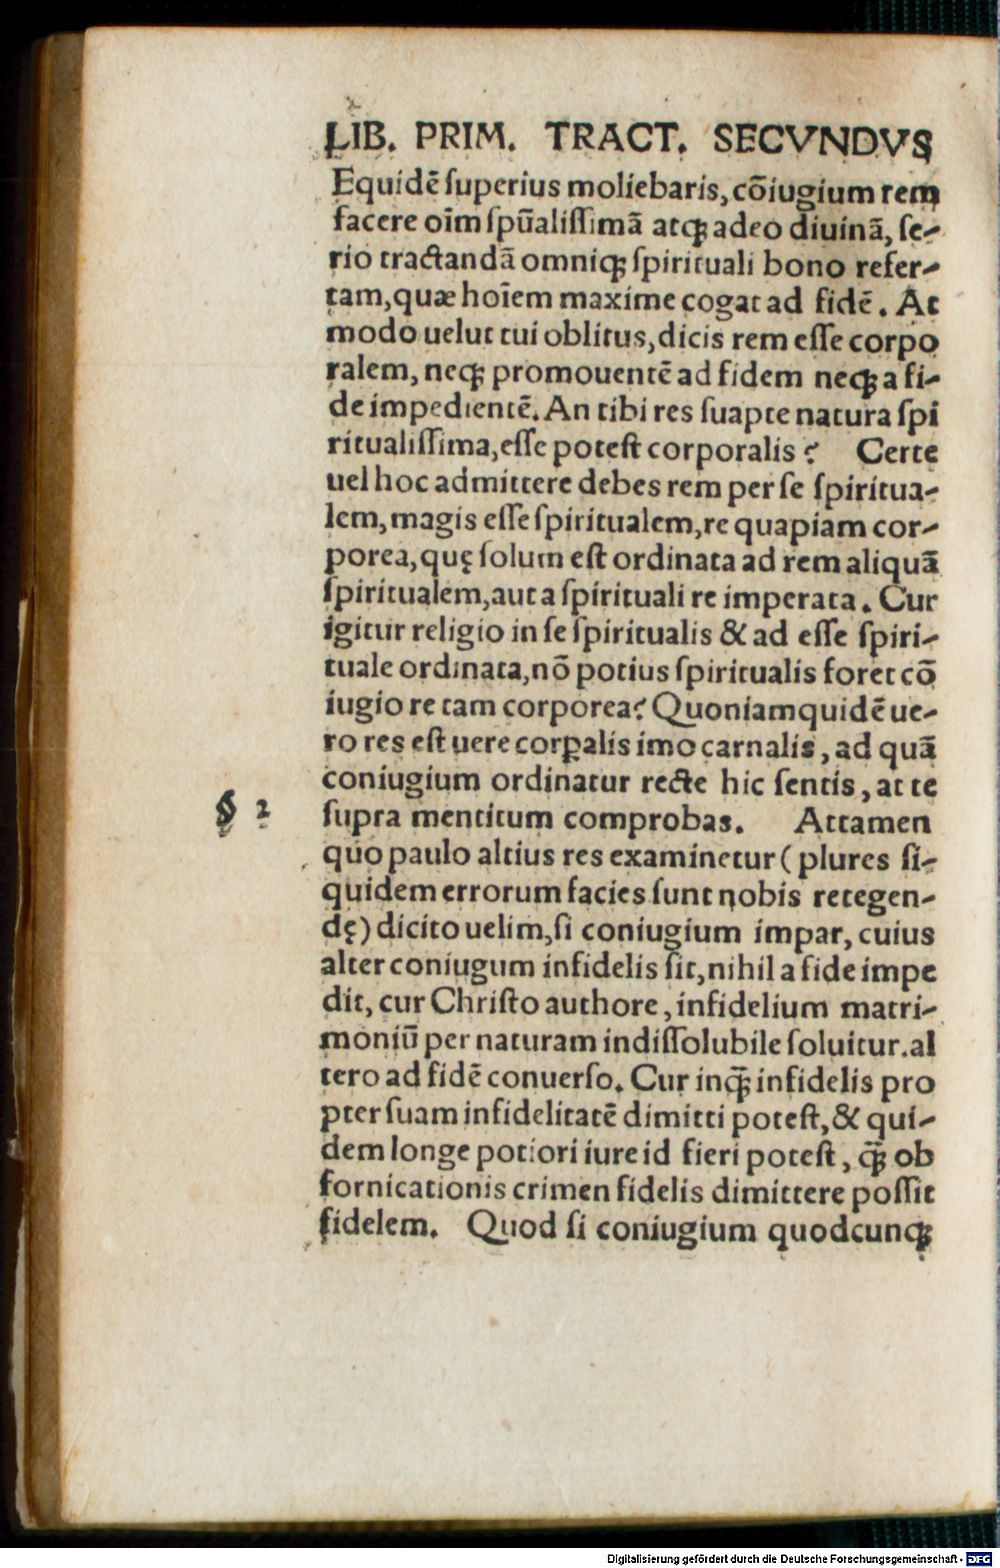 LIB. PRIM. TRACT. SECVNDVS
Equidē ſuperius moliebaris, cōiugium rem
facere oīm ſpūaliſſimā atqꝫ adeo diuinā, ſe-
rio tractandā omniqꝫ ſpirituali bono refer-
tam, quæ hoīem maxime cogat ad fidē. At
modo uelut tui oblitus, dicis rem eſſe corpo
ralem, neqꝫ promouentē ad fidem neqꝫ a fi-
de impedientē. An tibi res ſuapte natura ſpi
ritualiſſima, eſſe poteſt corporalis? Certe
uel hoc admittere debes rem per ſe ſpiritua-
lem, magis eſſe ſpiritualem, re quapiam cor-
porea, quę ſolum eſt ordinata ad rem aliquā
ſpiritualem, aut a ſpirituali re imperata. Cur
igitur religio in ſe ſpiritualis & ad eſſe ſpiri-
tuale ordinata, nō potius ſpiritualis foret cō
iugio re tam corporea? Quoniamquidē ue-
ro res eſt uere corꝑalis imo carnalis, ad quā
coniugium ordinatur recte hic ſentis, at te
§ 2 ſupra mentitum comprobas. Attamen
quo paulo altius res examinetur (plures ſi-
quidem errorum facies ſunt nobis retegen-
dę) dicito uelim, ſi coniugium impar, cuius
alter coniugum infidelis ſit, nihil a fide impe
dit, cur Chriſto authore, infidelium matri-
moniū per naturam indiſſolubile ſoluitur. al
tero ad fidē conuerſo. Cur inqꝫ̄ infidelis pro
pter ſuam infidelitatē dimitti poteſt, & qui-
dem longe potiori iure id fieri poteſt, qꝫ̄ ob
fornicationis crimen fidelis dimittere poſſit
fidelem. Quod ſi coniugium quodcunqꝫ
Digitalisierung gefördert durch die Deutsche Forschungsgemeinschaft - DFG